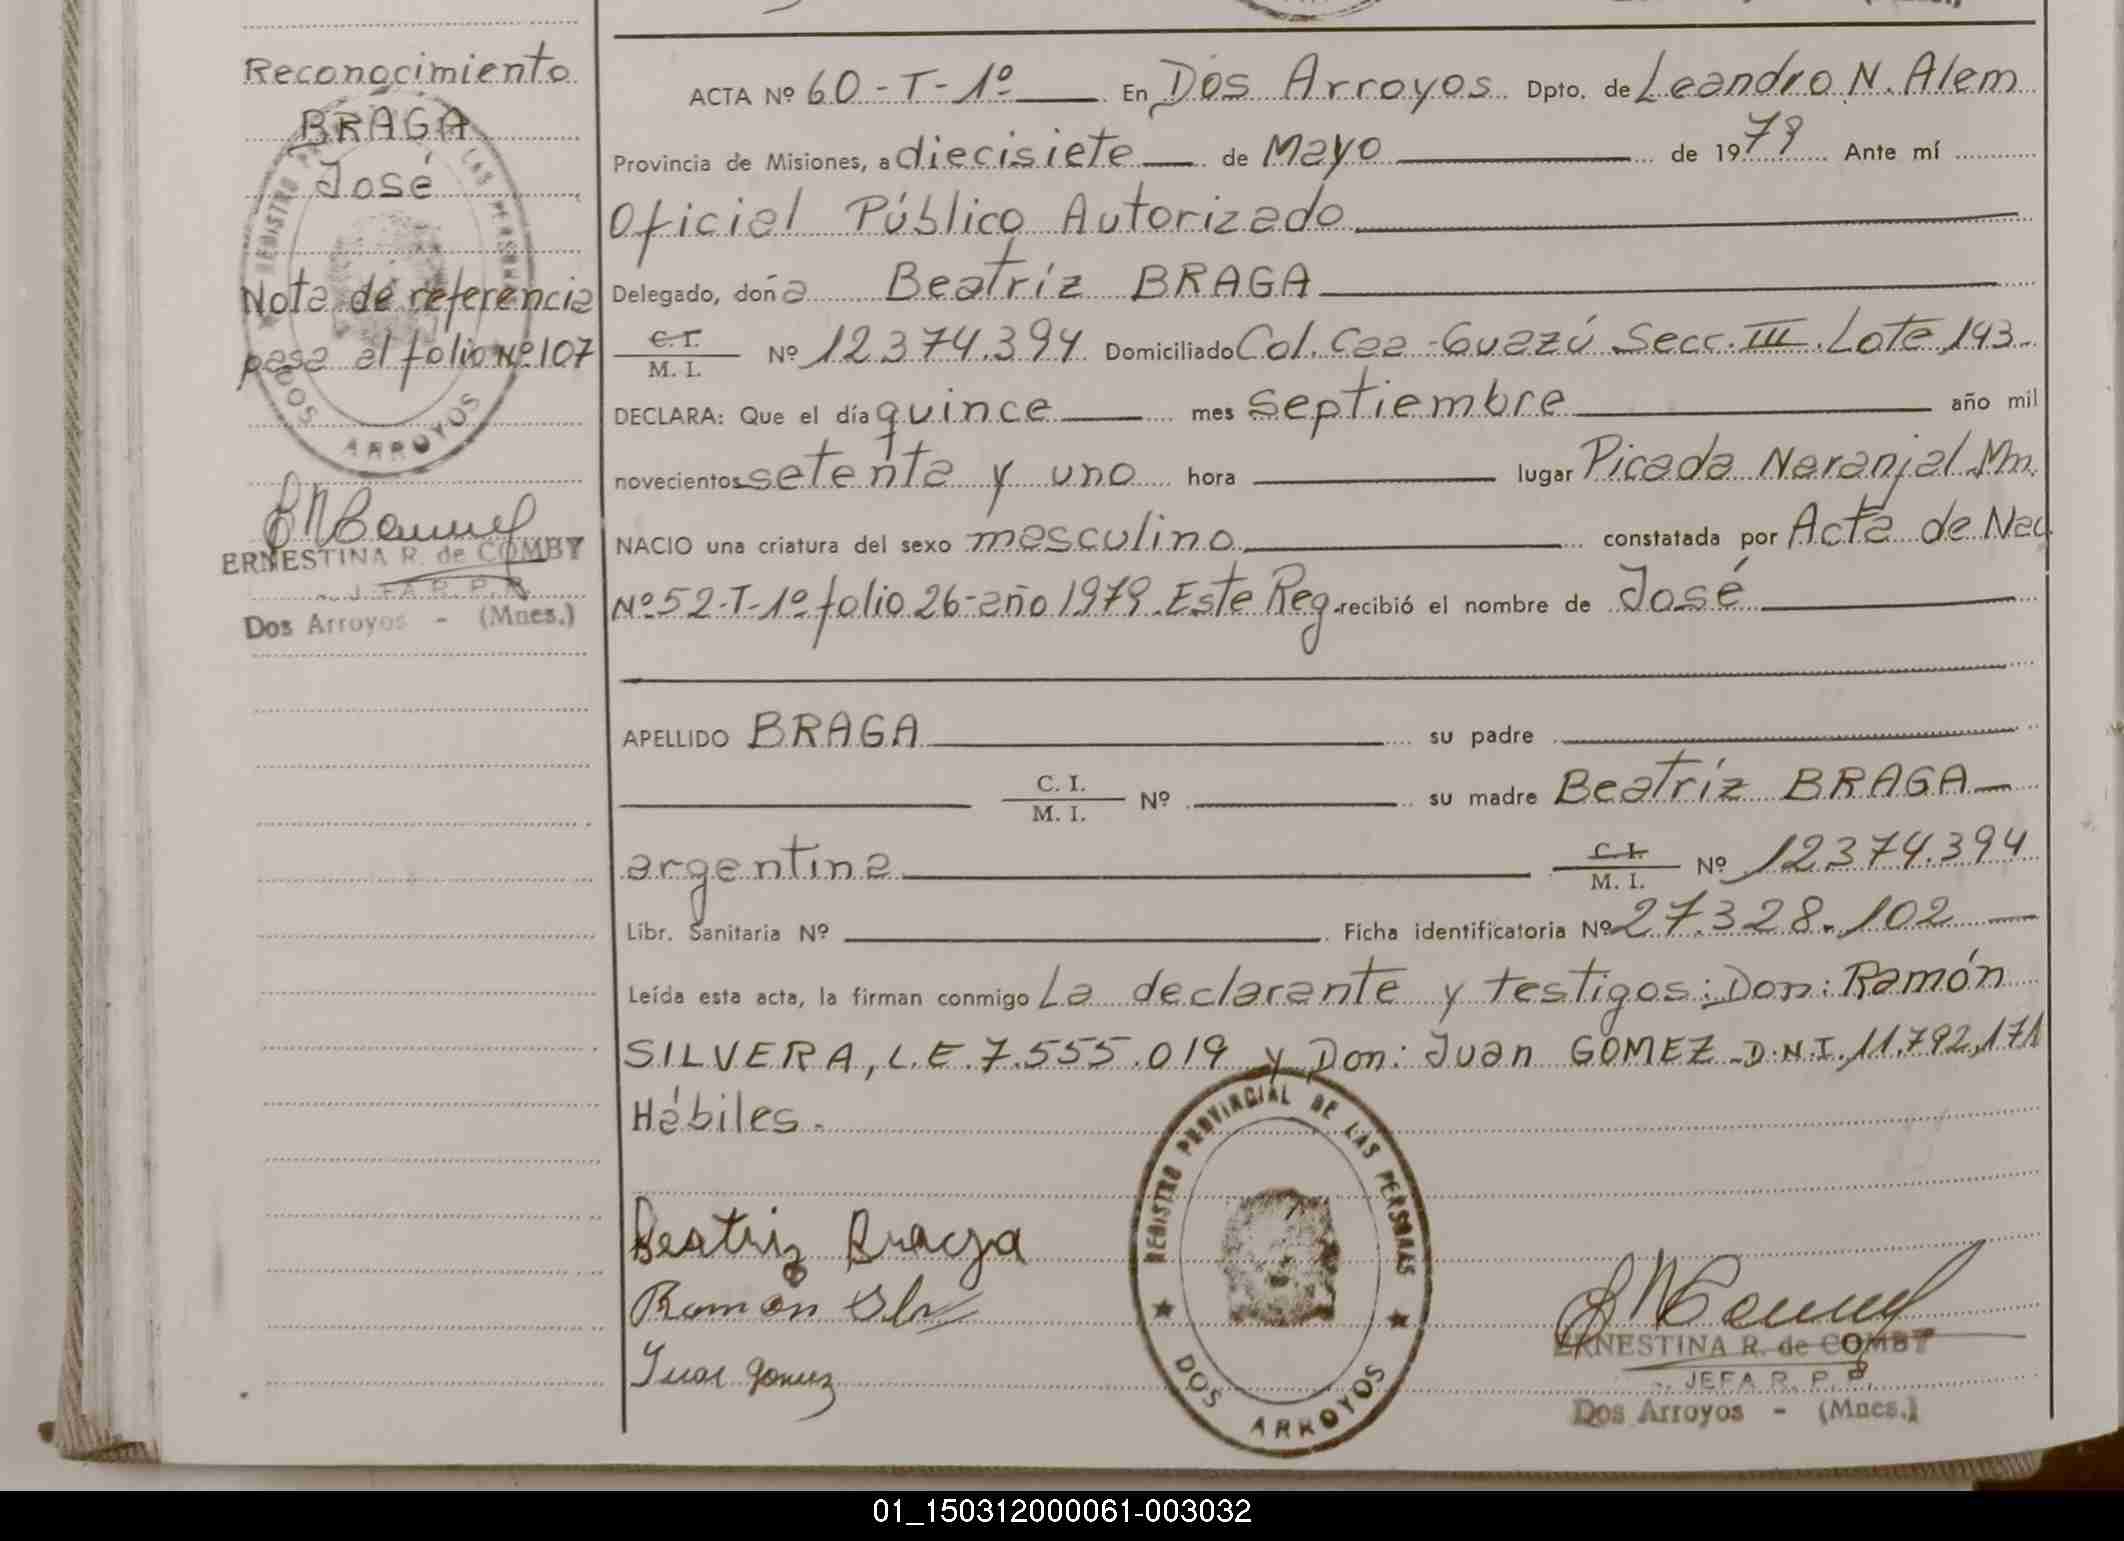 Reconocimiento
BRAGA
José
Nota de referencia
pasa al folio Nº 107
REGISTRO LAS PERSONAS
DOS ARROYOS
ERNESTINA R. de COMBY
JEFA R. P. P.
Dos Arroyos - (Mnes.)
ACTA Nº 60-T-1º En Dos Arroyos Dpto. de Leandro N. Alem
Provincia de Misiones, a diecisiete de Mayo de 1979 Ante mí
Oficial Público Autorizado
Delegado, doña Beatríz BRAGA
C.I. M. I. Nº 12.374.394 Domiciliado Col. Caa-Guazú Secc. III. Lote 143.
DECLARA: Que el día quince mes septiembre año mil
novecientos setenta y uno hora lugar Picada Naranjal Mm.
NACIO una criatura del sexo masculino constatada por Acta de Nac
Nº 52-T-1º folio 26-año 1979. Este Reg. recibió el nombre de José
APELLIDO BRAGA su padre
C. I. M. I. Nº su madre Beatríz BRAGA
argentina C. I. M. I. Nº 12.374.394
Libr. Sanitaria Nº Ficha identificatoria Nº 27.328.102
Leída esta acta, la firman conmigo La declarante y testigos: Don: Ramón
SILVERA, L.E. 7.555.019 y Don: Juan GOMEZ-D.N.I. 11.792.171
Hábiles.
Beatriz Braga
Ramon
Juan gomez
REGISTRO PROVINCIAL DE LAS PERSONAS
DOS ARROYOS
ERNESTINA R. de COMBY
JEFA R. P. P.
Dos Arroyos - (Mnes.)
01_150312000061-003032